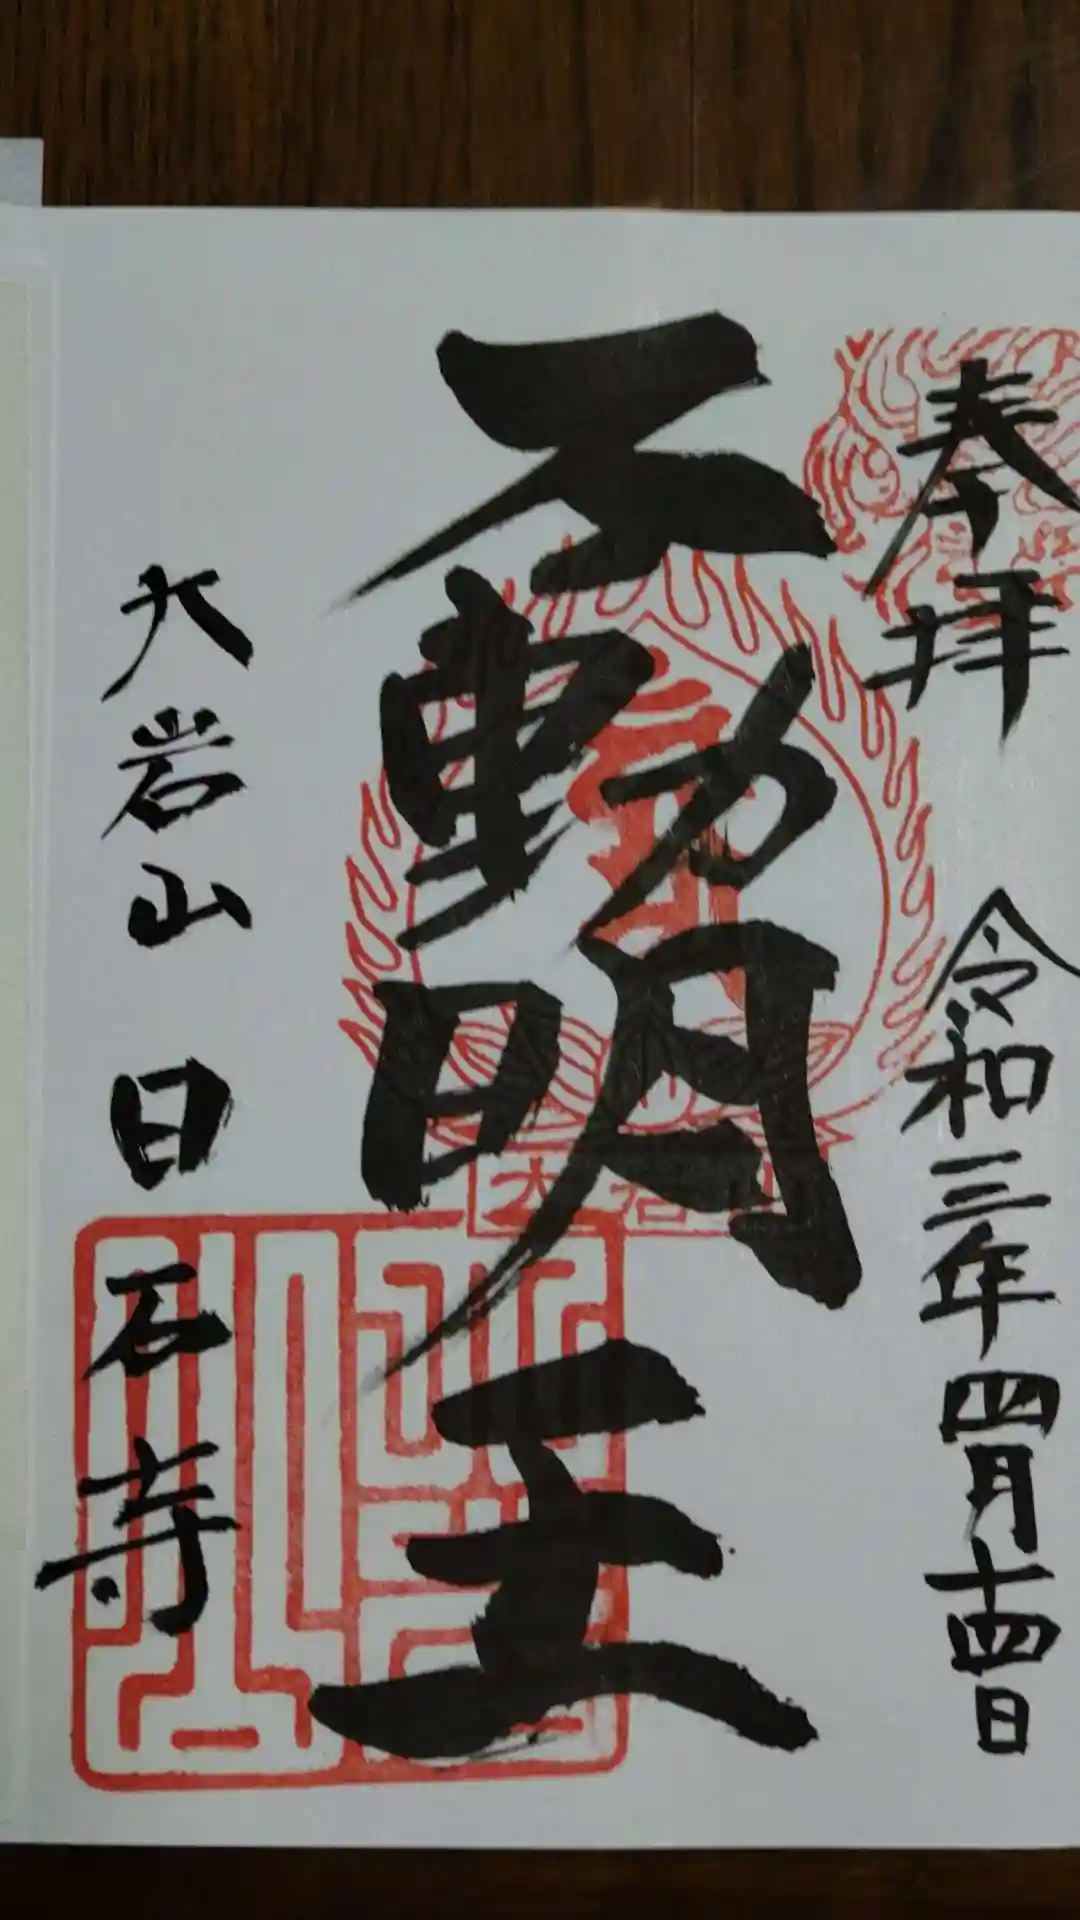 奉拝
令和三年四月十四日
不動明王
大岩山
大岩山 日石寺